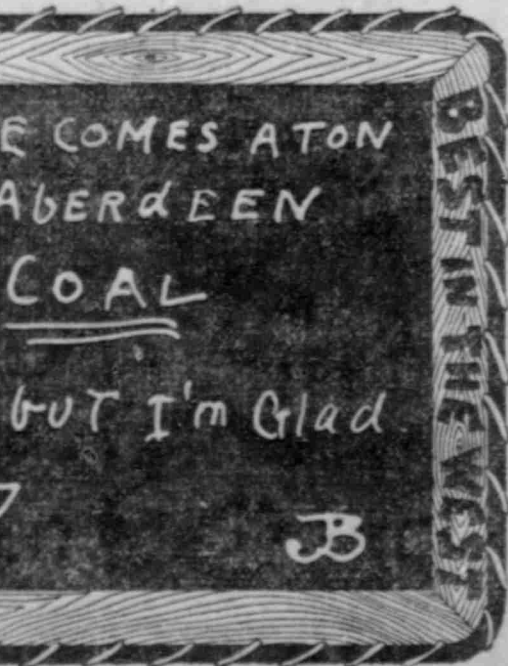 E COMES A TON
AbERdEEN
COAL
but I'm Glad
JB
BEST IN THE WEST